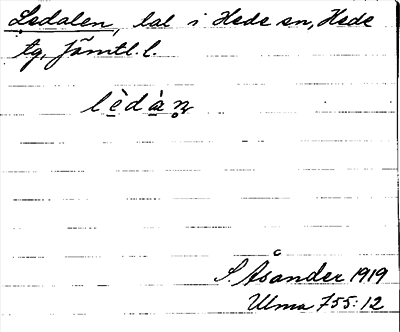 Ledalen, lal i Hede sn, Hede
tg, Jämtl. l.
lèdàn̥
S Åsander 1919
Ulma 755:12